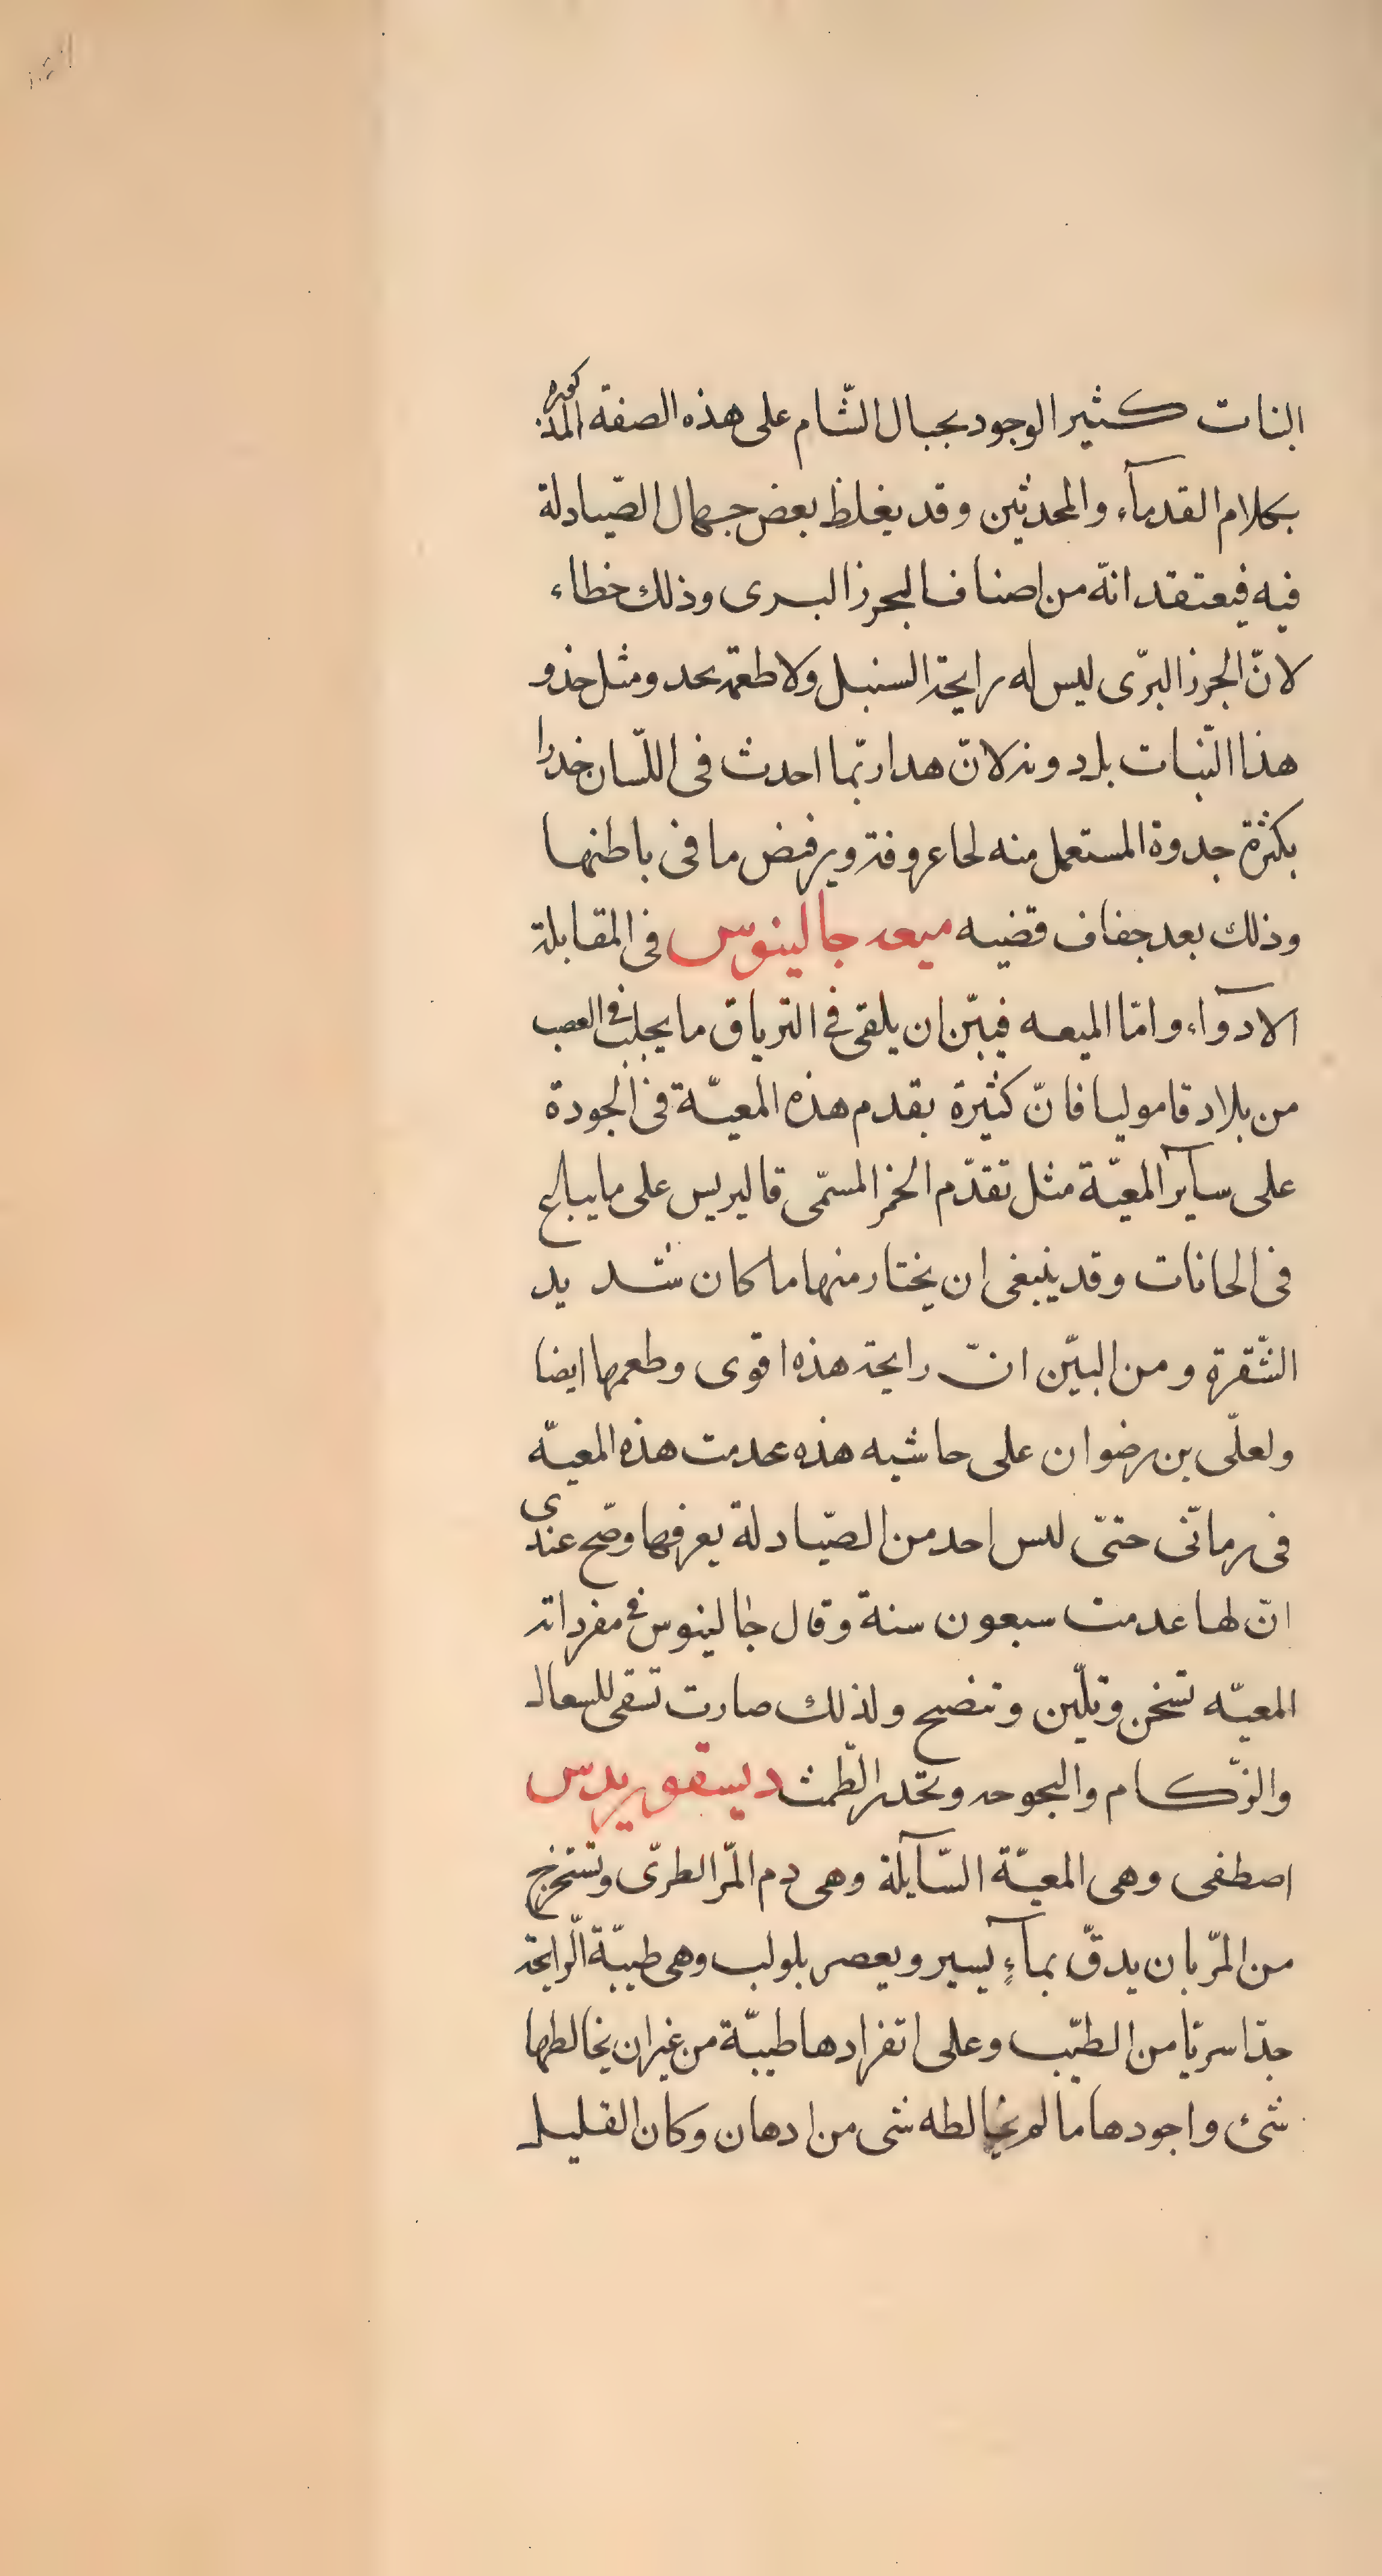 النبات كثير الوجود بجبال الشّام على هذه الصفه المذكوره
بكلام القدمآء والمحدثين وقد يغلظ بعض جهال الصّيادلة
فيه فيعتقد انّه من اصناف الجرز البرى وذلك خطاء
لانّ الجرز البرّى ليس له رايحة السنبل ولا طعمه يحد ومثل خذو
هذا النّبات بل دونه لانّ هدا ربّما احدث فى اللّسان خدرا
بكثرة جدوة المستعمل منه لحا عروقه ويرفض ما فى باطنها
وذلك بعد جفاف قضيه ميعه جالينوس فى المقابلة
الادوآء وامّا الميعه فيبّن ان يلقى فى الترياق ما يجلب فى العصب
من بلاد قاموليا فانّ كثيرة بقدم هذه المعيّة فى الجودة
على سآير المعيّة مثل تقدّم الخمر المسمّى قاليريس على ما يباع
فى الحانات وقد ينبغى ان يختار منها ما كان شديد
الشّقرة ومن البيّن انّ رايحة هذه اقوى وطعمها ايضا
ولعلّى بن رضوان على حاشيه هذه عدمت هذه المعيّه
فى زمانّى حتىّ ليس احد من الصّيادلة يعرفها وصّح عندى
انّ لها عدمت سبعون سنة وقال جالينوس فى مفرداته
المعيّه تسخن وتليّن وتنضج ولذلك صارت تسقى للسعال
والزّكام والبحوحه وتحدر الطّمث ديسقوريدس
اصطفى وهى المعيّة السّآيلة وهى دم المّر الطرىّ وتستخرج
من المرّ بان يدقّ بمآءٍ يسير ويعصر بلولب وهى طيبّة الّرايحة
جدّا سريّا من الطيّب وعلى انفرادها طيبّة من غير ان يخالطها
شئ واجودها ما لم يخالطه شى من ادهان وكان القليل